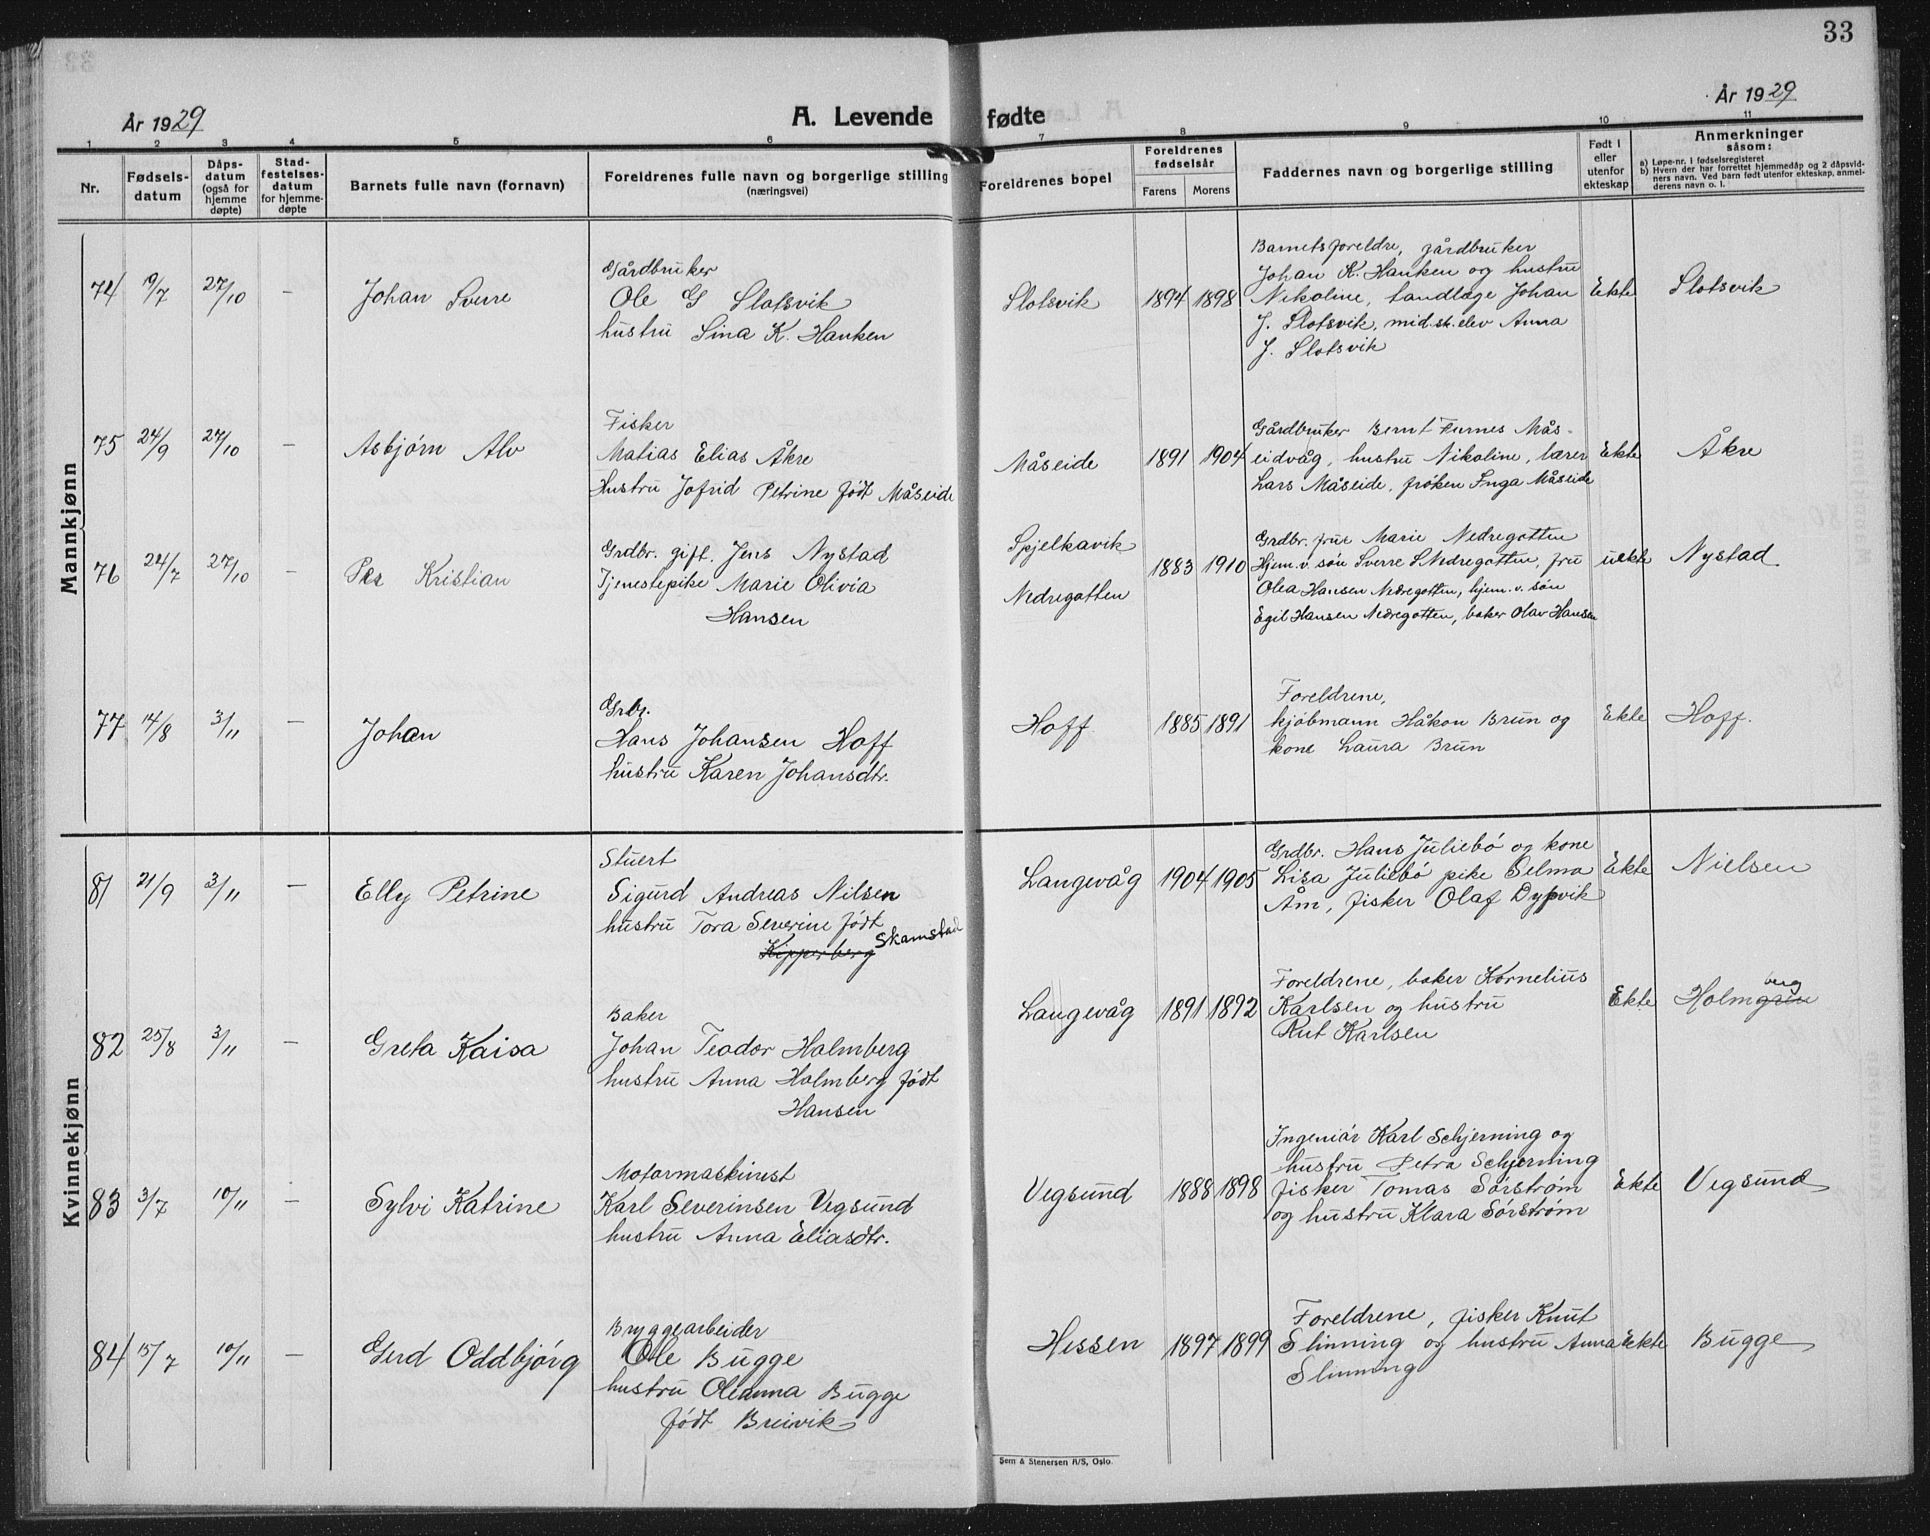 33
År 1929
A. Levende fødte
År 1929
1 2 3 4 5 6 7 8 9 10 11
Nr.
Fødsels-
datum
Dåps-
datum
(også for
hjemme
døpte)
Stad-
festelses-
datum
for hjemme-
døpte
Barnets fulle navn (fornavn)
Foreldrenes fulle navn og borgerlige stilling
(næringsvei)
Foreldrenes bopel
Foreldrenes
fødselsår
Farens Morens
Faddernes navn og borgerlige stilling
Født i
eller
utenfor
ekteskap
Anmerkninger
såsom:
a) Løpe-nr. i fødselsregisteret
b) Hvern der har forrettet hjemmedåp og 2 dåpsvid-
ners navn. Ved barn født utenfor ekteskap, anmel-
derens navn o. l.
Mannkjønn
74 19/7 27/10 — Johan Sverre
Gårdbruker
Ole G Slotsvik
hustru Sina K. Hanken
Slotsvik 1894 1898
Barnets foreldre, gårdbruker
Johan K. Hanken og hustru
Nikoline, tandlæge Johan
J. Slotsvik, mid.sk. elev Anna
J. Slotsvik
Ekte Slotsvik
75 24/9 27/10 — Asbjørn Alv
Fisker
Matias Elias Åkre
Hustru Jofrid Petrine født Måseide
Måseide 1891 1904
Gårdbruker Bernt Furnes Mås-
eidvåg, hustru Nikoline, lærer
Lars Måseide, frøken Inga Måseide
Ekte Åkre
76 24/7 27/10 — Per Kristian
Grdbr. gift. Jens Nystad
Tjenestepike Marie Olivia
Hansen
Spjelkavik
Nedregotten
1883 1910
Grdbr. frue Marie Nedregotten
Hjem.v. søn Sverre S Nedregotten, fru
Olea Hansen Nedregotten, hjem.v. søn
Egil Hansen Nedregotten, baker Olav Hansen
uekte Nystad
77 14/8 3/11 — Johan
Grbr.
Hans Johansen Hoff
hustru Karen Johansdtr.
Hoff 1885 1891
Foreldrene,
kjøbmann Håkon Brun og
kone Laura Brun
Ekte Hoff.
Kvinnekjønn
81 21/9 3/11 — Elly Petrine
Stuert
Sigurd Andreas Nilsen
hustru Tora Severine født
Kipperberg Skamstad
Langevåg 1904 1905
Grdbr. Hans Juliebø og kone
Lisa Juliebø pike Selma
Åm, fisker Olaf Dypvik
Ekte Nielsen
82 25/8 3/11 — Greta Kaisa
Baker
Johan Teodor Holmberg
hustru Anna Holmberg født
Hansen
Langevåg 1891 1892
Foreldrene, baker Kornelius
Karlsen og hustru
Rut Karlsen
Ekte Holmgren berg
83 3/7 10/11 — Sylvi Katrine
Motormaskinist
Karl Severinsen Vegsund
hustru Anna Eliasdtr.
Vegsund 1888 1898
Ingeniør Karl Schjerning og
hustru Petra Schjerning
fisker Tomas Sørstrøm
og hustru Klara Sørstrøm
Ekte Vegsund
84 15/7 10/11 — Gerd Oddbjørg
Bryggearbeider
Ole Bugge
hustru Oleanna Bugge
født Breivik
Hessen 1897 1899
Foreldrene, fisker Knut
Slinning og hustru Anna
Slinning
Ekte Bugge
Sem & Stenersen A/S, Oslo.